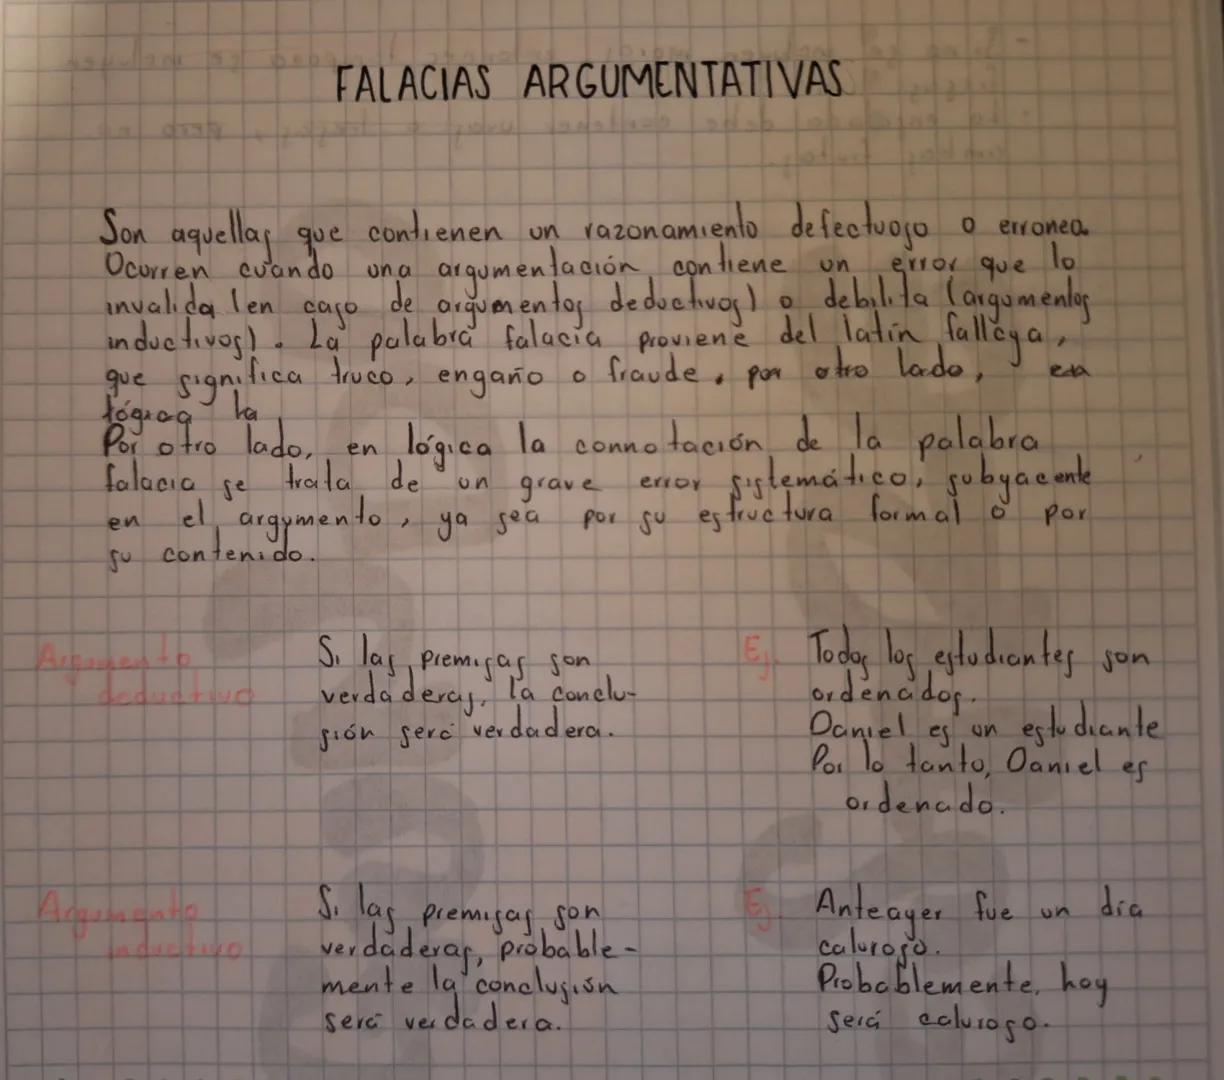 FALACIAS ARGUMENTATIVAS
Son aquellas que contienen un razonamiento defectuoso o erronea.
Ocurren cuando una argumentación contiene un error que lo
invalida (en caso de argumentos deductivos) o debilita (argumentos
inductivos). La palabra falacia proviene del latín fallcya,
que significa truco, engaño o fraude, por otro lado, en
lógica la
Por otro lado, en lógica la connotación de la palabra
falacia se trata de un grave error sistemático, subyacente
en el argumento, ya sea por su estructura formal o por
su contenido.
Argumento
deductivo
Si las premisas son
verdaderas, la conclu-
sión será verdadera.
Ej.
Todos los estudiantes son
ordenados.
Daniel es un estudiante
Por lo tanto, Daniel es
ordenado.
Argumento
inductivo
Si las premisas son
verdaderas, probable-
mente la conclusión
será verdadera.
Ej.
Anteayer fue un día
caluroso.
Probablemente, hoy
será caluroso.